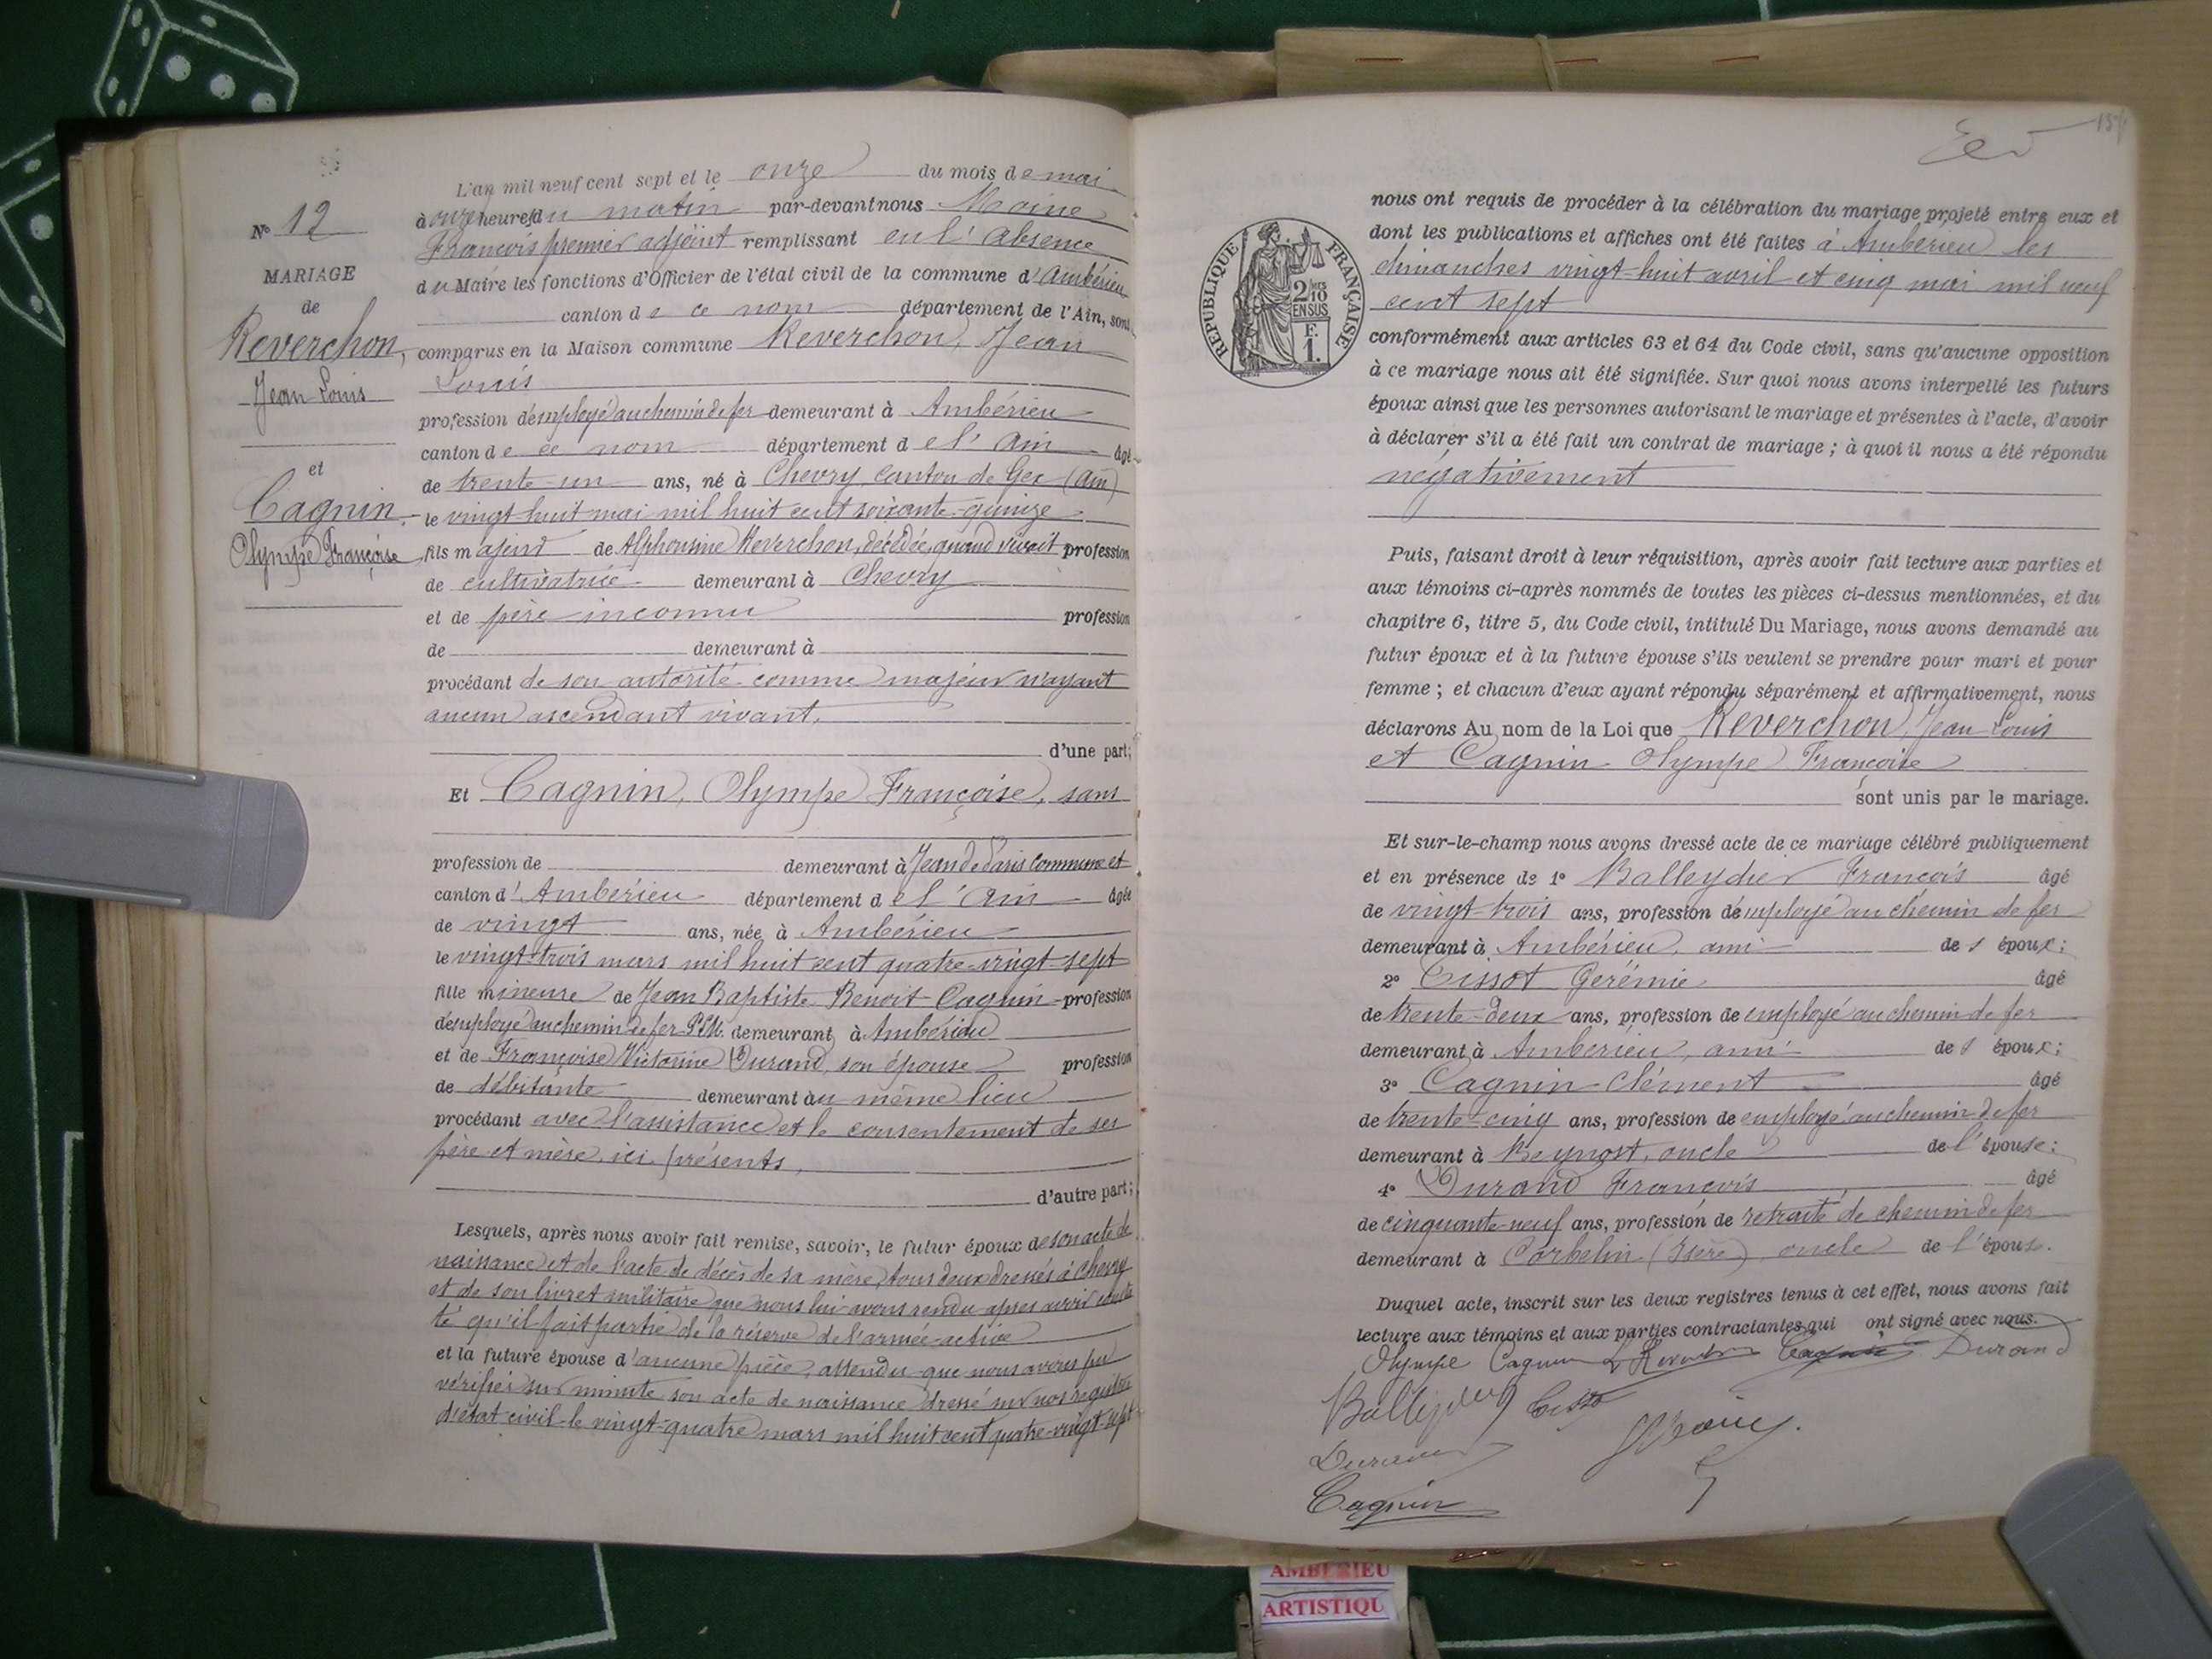 N° 12
MARIAGE
de
Reverchon,
Jean Louis
et
Cagnin,
Olympe Françoise
L'an mil neuf cent sept et le onze du mois de mai
à onze heures du matin par-devant nous Moine
François premier adjoint remplissant en l'absence
du Maire les fonctions d'Officier de l'état civil de la commune d'Ambérieu
canton de ce nom département de l'Ain, sont
comparus en la Maison commune Reverchon, Jean
Louis
profession d'employé au chemin de fer demeurant à Ambérieu
canton de ce nom département de l'Ain âgé
de trente-un ans, né à Chevry, canton de Gex (Ain)
le vingt-huit mai mil huit cent soixante-quinze
fils majeur de Alphonsine Reverchon, décédée, quand vivait profession
de cultivatrice demeurant à Chevry
et de père inconnu profession
de demeurant à
procédant de son autorité comme majeur n'ayant
aucun ascendant vivant,
d'une part;
Et Cagnin, Olympe Françoise, sans
profession de demeurant à Jean de Paris commune et
canton d'Ambérieu département de l'Ain âgée
de vingt ans, née à Ambérieu
le vingt-trois mars mil huit cent quatre-vingt-sept
fille mineure de Jean Baptiste Benoit Cagnin profession
d'employé au chemin de fer P.L.M. demeurant à Ambérieu
et de Françoise Victorine Durand, son épouse profession
de débitante demeurant au même lieu
procédant avec l'assistance et le consentement de ses
père et mère, ici présents,
d'autre part;
Lesquels, après nous avoir fait remise, savoir, le futur époux de son acte de
naissance et de l'acte de décès de sa mère, tous deux dressés à Chevry
et de son livret militaire que nous lui avons rendu apres avoir consta
té qu'il fait partie de la réserve de l'armée active
et la future épouse d'aucune pièce, attendu que nous avons pu
vérifier sur minute son acte de naissance dressé sur nos registres
d'état civil le vingt-quatre mars mil huit cent quatre-vingt sept
REPUBLIQUE FRANÇAISE
2/10 EN SUS
F.
1.
nous ont requis de procéder à la célébration du mariage projeté entre eux et
dont les publications et affiches ont été faites à Ambérieu les
dimanches vingt-huit avril et cinq mai mil neuf
cent sept
conformément aux articles 63 et 64 du Code civil, sans qu'aucune opposition
à ce mariage nous ait été signifiée. Sur quoi nous avons interpellé les futurs
époux ainsi que les personnes autorisant le mariage et présentes à l'acte, d'avoir
à déclarer s'il a été fait un contrat de mariage ; à quoi il nous a été répondu
négativement
Puis, faisant droit à leur réquisition, après avoir fait lecture aux parties et
aux témoins ci-après nommés de toutes les pièces ci-dessus mentionnées, et du
chapitre 6, titre 5, du Code civil, intitulé Du Mariage, nous avons demandé au
futur époux et à la future épouse s'ils veulent se prendre pour mari et pour
femme ; et chacun d'eux ayant répondu séparément et affirmativement, nous
déclarons Au nom de la Loi que Reverchon, Jean Louis
et Cagnin Olympe Françoise
sont unis par le mariage.
Et sur-le-champ nous avons dressé acte de ce mariage célébré publiquement
et en présence de 1° Balleydier François âgé
de vingt-trois ans, profession d'employé au chemin de fer
demeurant à Ambérieu, ami de s époux;
2° Cissot Gerémie âgé
de trente-deux ans, profession de employé au chemin de fer
demeurant à Amberieu, ami de s époux;
3° Cagnin Clément âgé
de trente-cinq ans, profession de employé au chemin de fer
demeurant à Beynost, oncle de l'épouse;
4° Durand François âgé
de cinquante-neuf ans, profession de retraité de chemin de fer
demeurant à Corbelin (Isère), oncle de l'épouse.
Duquel acte, inscrit sur les deux registres tenus à cet effet, nous avons fait
lecture aux témoins et aux parties contractantes qui ont signé avec nous.
Olympe Cagnin Cagnin Durand
Durand
Cagnin
AMBERIEU
ARTISTIQU